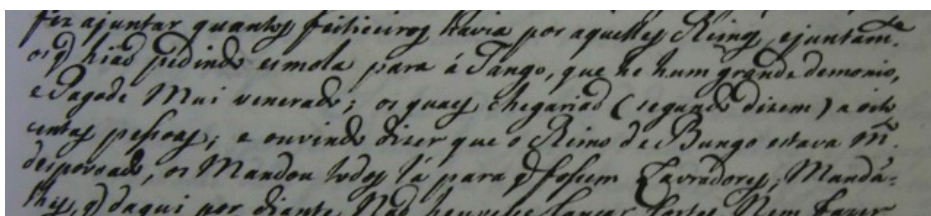 fez ajuntar quantos feiticeiros havia por aquelles Reinos, ejuntam.te
os q̃ hiaõ pedindo esmola para á Tango, que he hum grande demonio,
e Pagode Mui venerado; os quaes chegariaõ (segundo dizem) a oito
centas pessoas; e ouvindo dizer que o Reino de Bungo estava m.to
despovoado, os Mandou todos lá para q̃ fossem Lavradores, Mandã=
lhes, q̃ daqui por diante Naõ lançar sortes, Nem fazer